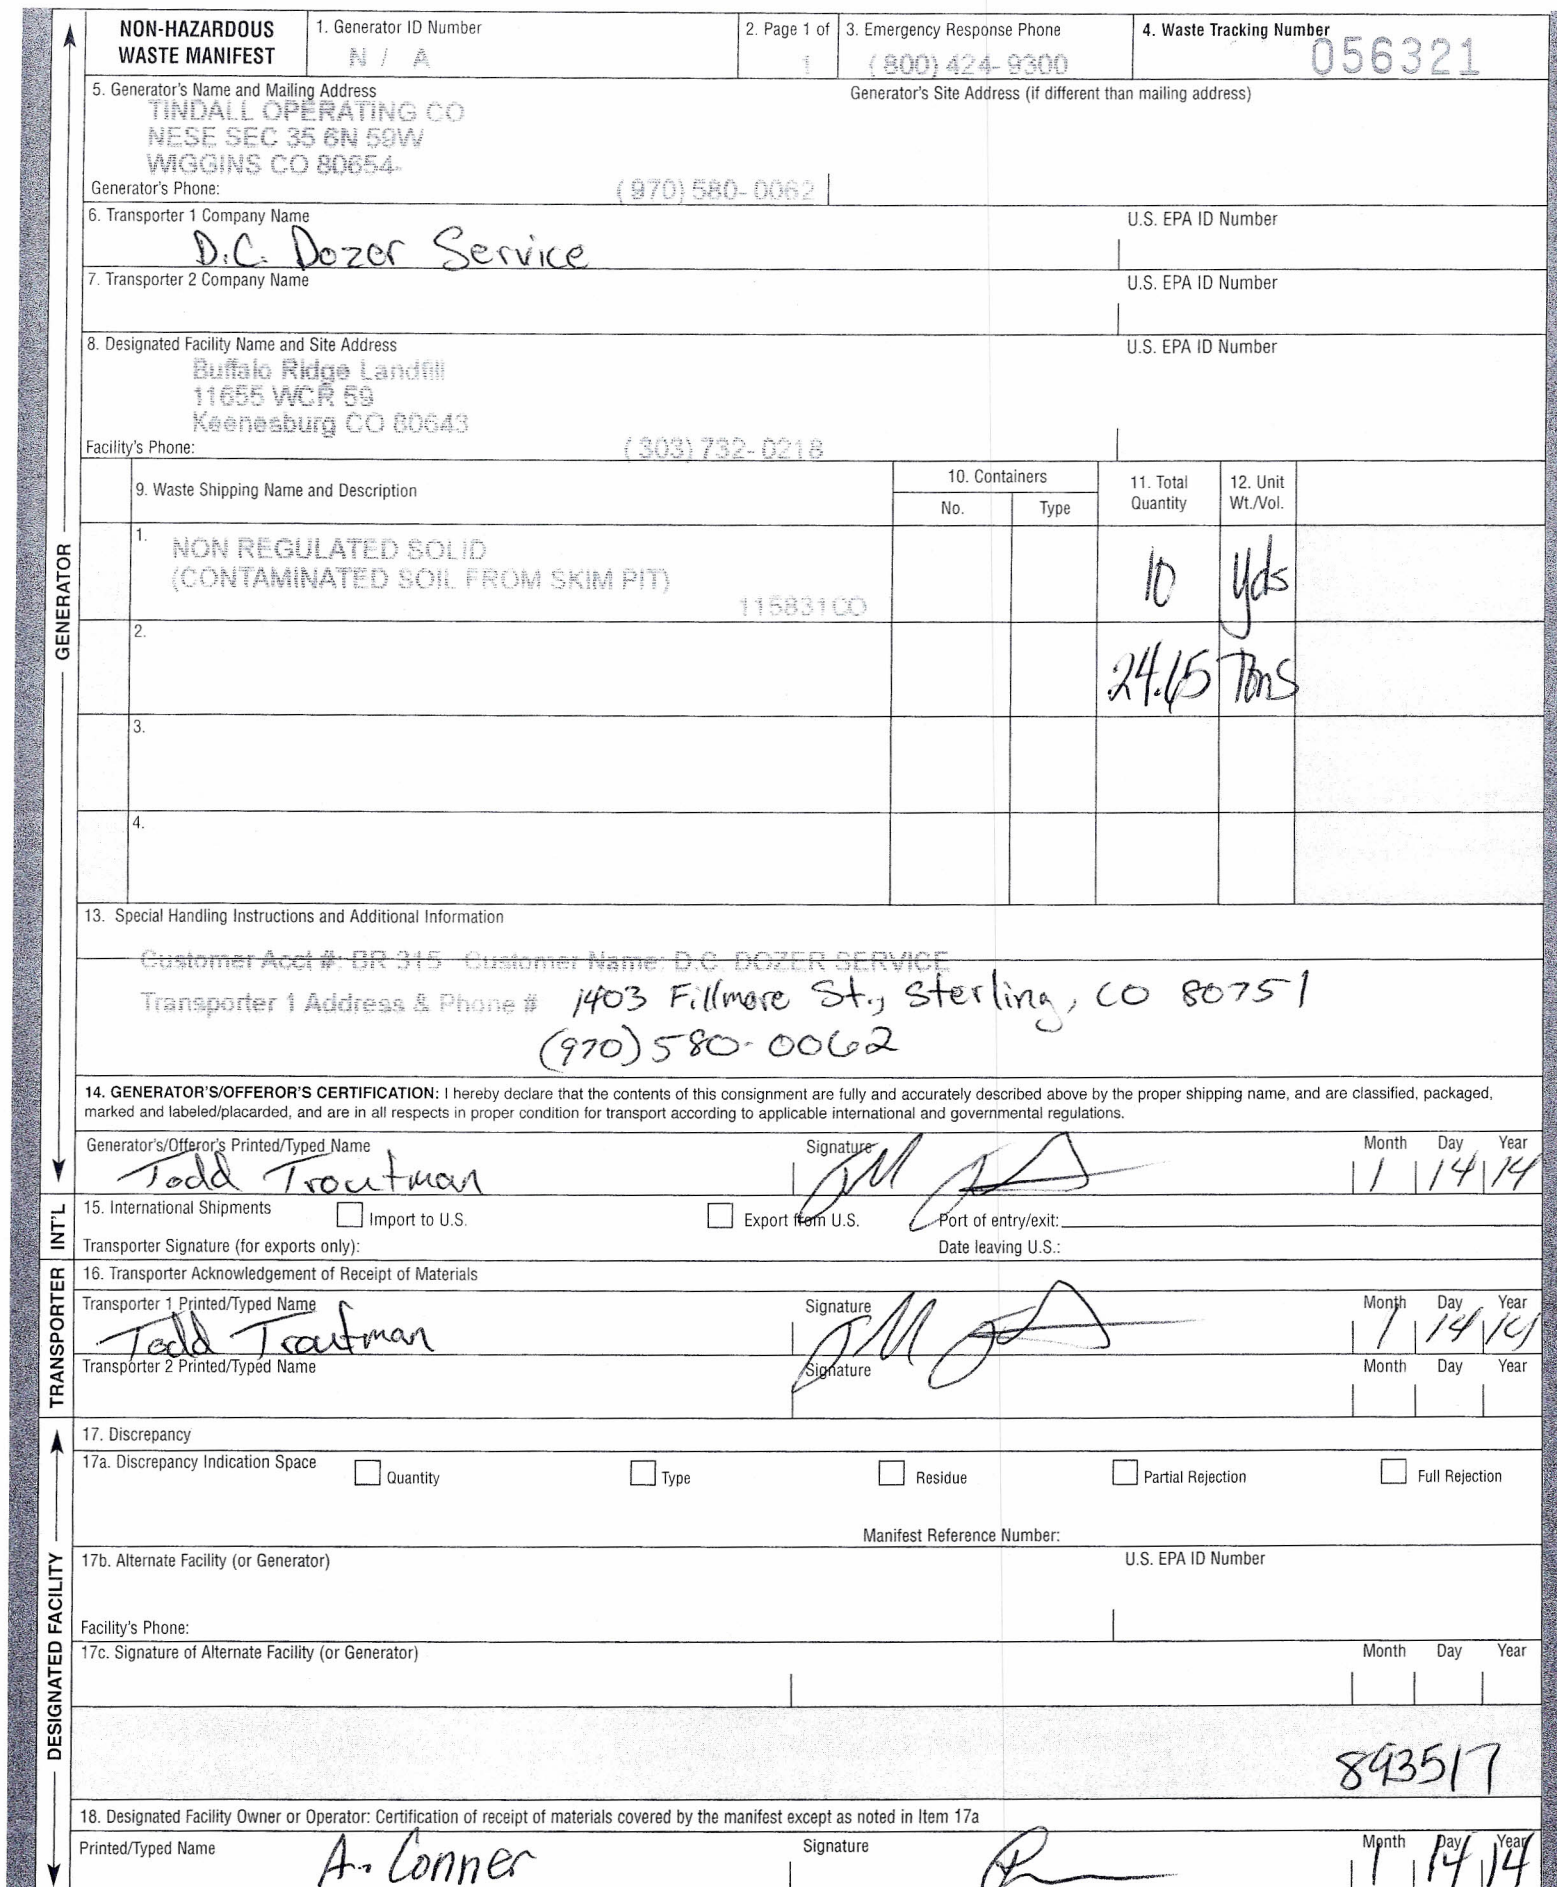 NON-HAZARDOUS WASTE MANIFEST
1. Generator ID Number
N / A
2. Page 1 of
1
3. Emergency Response Phone
(800) 424-9300
4. Waste Tracking Number
056321
5. Generator's Name and Mailing Address
Generator's Site Address (if different than mailing address)
TINDALL OPERATING CO
NESE SEC 35 6N 59W
WIGGINS CO 80654-
Generator's Phone: (970) 580-0062
6. Transporter 1 Company Name
U.S. EPA ID Number
D.C. Dozer Service
7. Transporter 2 Company Name
U.S. EPA ID Number
8. Designated Facility Name and Site Address
U.S. EPA ID Number
Buffalo Ridge Landfill
11655 WCR 59
Keenesburg CO 80643
Facility's Phone: (303) 732-0218
9. Waste Shipping Name and Description
10. Containers
No.
Type
11. Total Quantity
12. Unit Wt./Vol.
1.
NON REGULATED SOLID
(CONTAMINATED SOIL FROM SKIM PIT)
115831CO
10 yds
2.
24.15 Tons
3.
4.
13. Special Handling Instructions and Additional Information
Customer Acct #: BR 315 Customer Name: D.C. DOZER SERVICE
Transporter 1 Address & Phone # 1403 Fillmore St., Sterling, CO 80751
(970) 580-0062
14. GENERATOR'S/OFFEROR'S CERTIFICATION: I hereby declare that the contents of this consignment are fully and accurately described above by the proper shipping name, and are classified, packaged,
marked and labeled/placarded, and are in all respects in proper condition for transport according to applicable international and governmental regulations.
Generator's/Offeror's Printed/Typed Name
Signature
Month Day Year
Todd Troutman
1 14 14
15. International Shipments
Import to U.S.
Export from U.S.
Port of entry/exit:
Transporter Signature (for exports only):
Date leaving U.S.:
16. Transporter Acknowledgement of Receipt of Materials
Transporter 1 Printed/Typed Name
Signature
Month Day Year
Todd Troutman
1 14 14
Transporter 2 Printed/Typed Name
Signature
Month Day Year
17. Discrepancy
17a. Discrepancy Indication Space
Quantity
Type
Residue
Partial Rejection
Full Rejection
Manifest Reference Number:
17b. Alternate Facility (or Generator)
U.S. EPA ID Number
Facility's Phone:
17c. Signature of Alternate Facility (or Generator)
Month Day Year
893517
18. Designated Facility Owner or Operator: Certification of receipt of materials covered by the manifest except as noted in Item 17a
Printed/Typed Name
A. Conner
Signature
Month Day Year
1 14 14
GENERATOR
INT'L
TRANSPORTER
DESIGNATED FACILITY